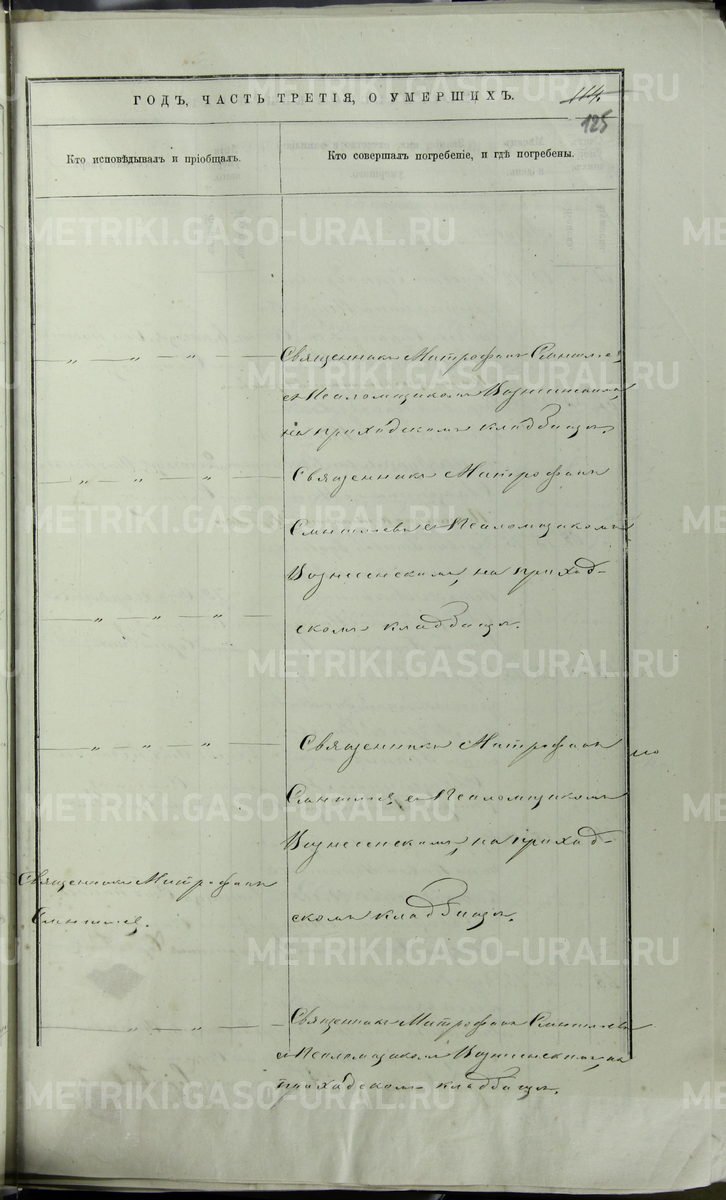 ГОДЪ, ЧАСТЬ ТРЕТІЯ, О УМЕРШИХЪ.
114.
125
Кто исповѣдывалъ и пріобщалъ.
Кто совершалъ погребеніе, и гдѣ погребены.
Священникъ Митрофанъ
съ Псаломщикомъ Вознесенскимъ,
на приходскомъ кладбищѣ.
Священникъ Митрофанъ
съ Псаломщикомъ
Вознесенскимъ, на приход-
скомъ кладбищѣ.
Священникъ Митрофанъ
съ Псаломщикомъ
Вознесенскимъ, на приход-
скомъ кладбищѣ.
Священникъ Митрофанъ
Священникъ Митрофанъ
съ Псаломщикомъ Вознесенскимъ, на
приходскомъ кладбищѣ.
METRIKI.GASO-URAL.RU